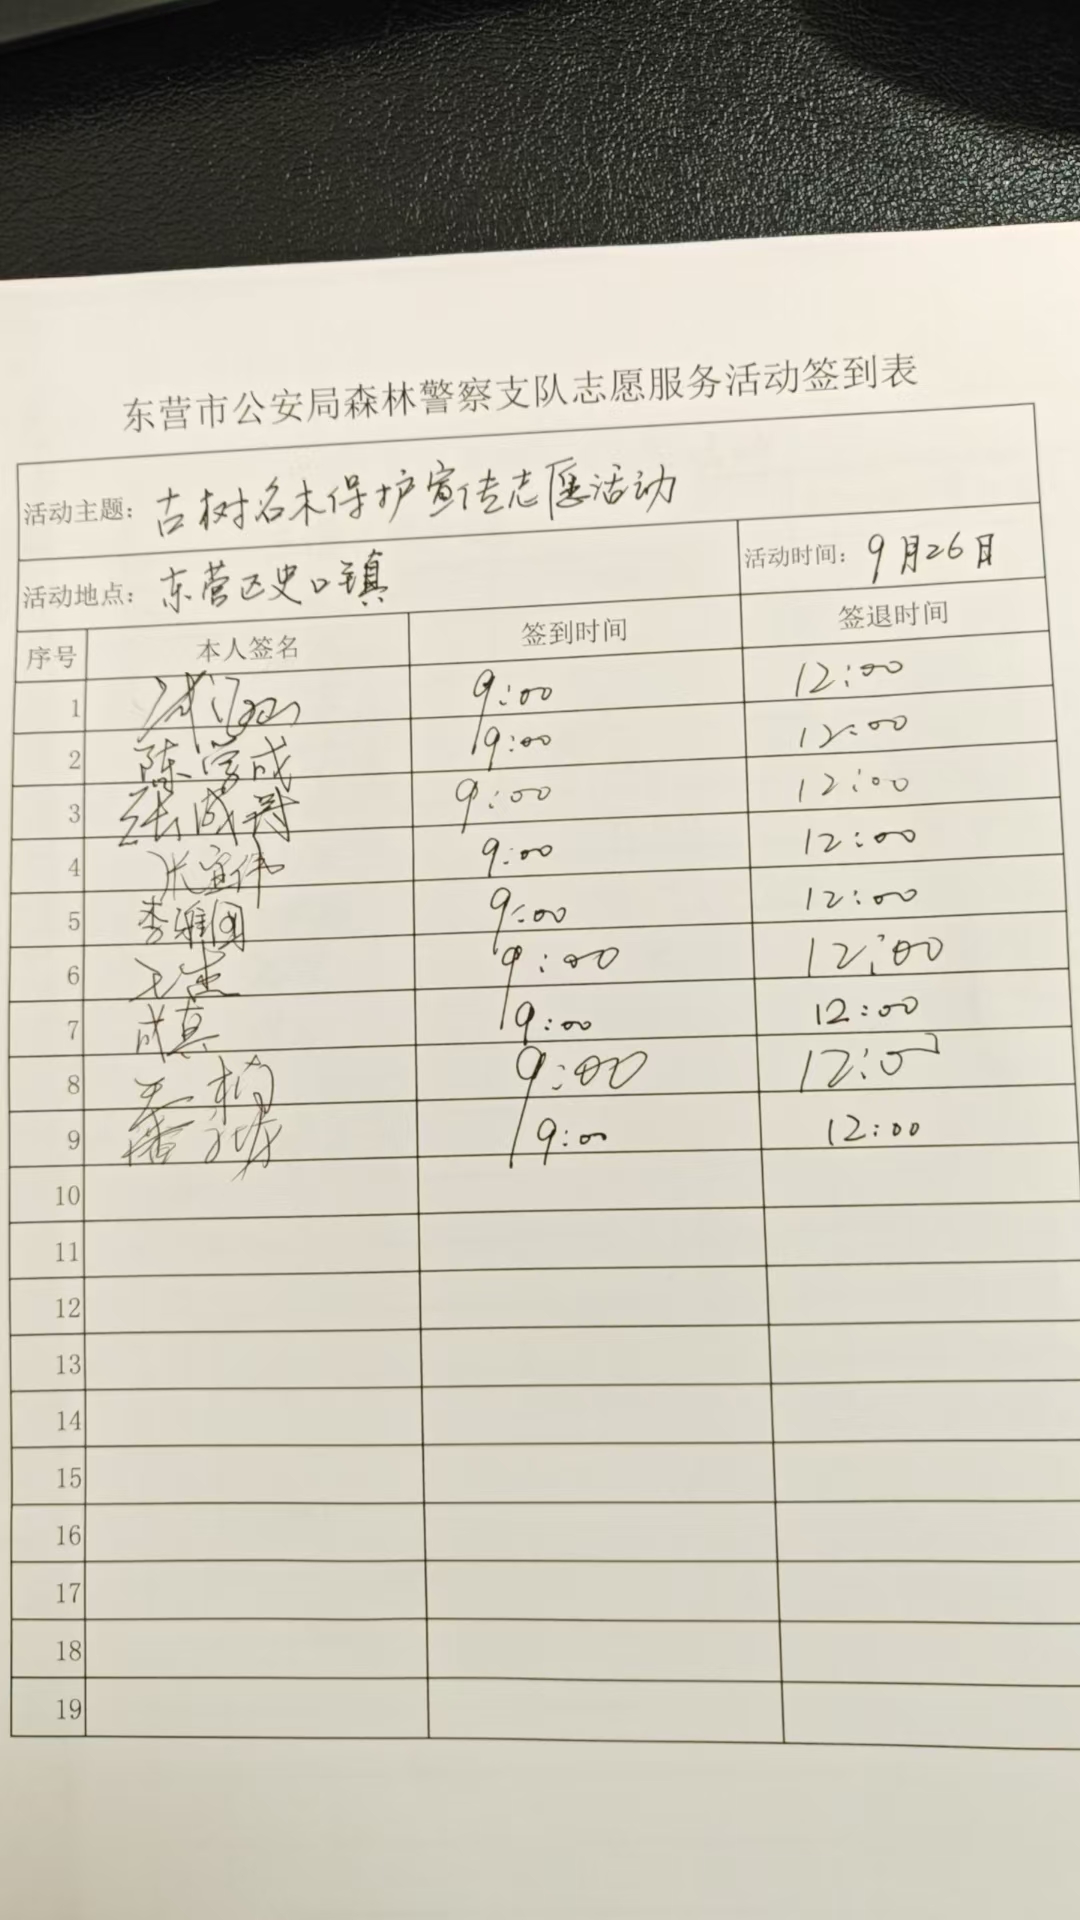 东营市公安局森林警察支队志愿服务活动签到表
活动主题: 古树名木保护宣传志愿活动
活动地点: 东营区史口镇 活动时间: 9月26日
序号 本人签名 签到时间 签退时间
1 9:00 12:00
2 陈学成 9:00 12:00
3 张成 9:00 12:00
4 张宜伟 9:00 12:00
5 李雅 9:00 12:00
6 王杰 9:00 12:00
7 成真 9:00 12:00
8 9:00 12:00
9 9:00 12:00
10
11
12
13
14
15
16
17
18
19